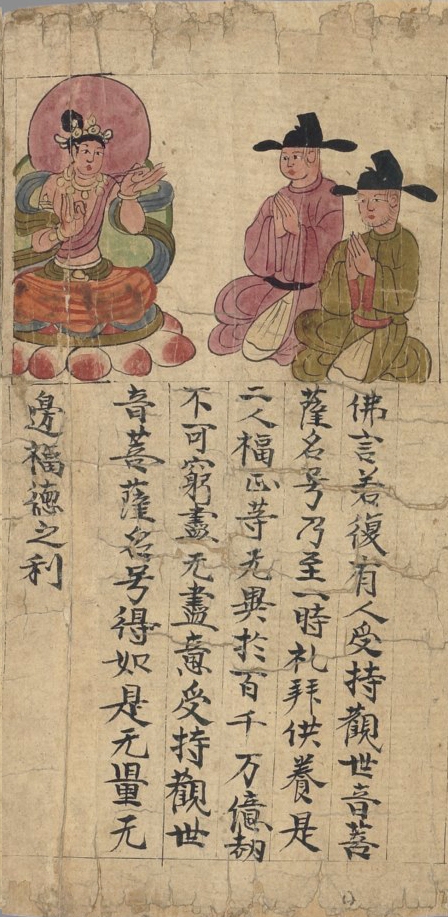 佛言若復有人受持觀世音菩
薩名号乃至一時礼拜供養是
二人福正等无異於百千万億劫
不可窮盡无盡意受持觀世
音菩薩名号得如是无量无
邊福德之利